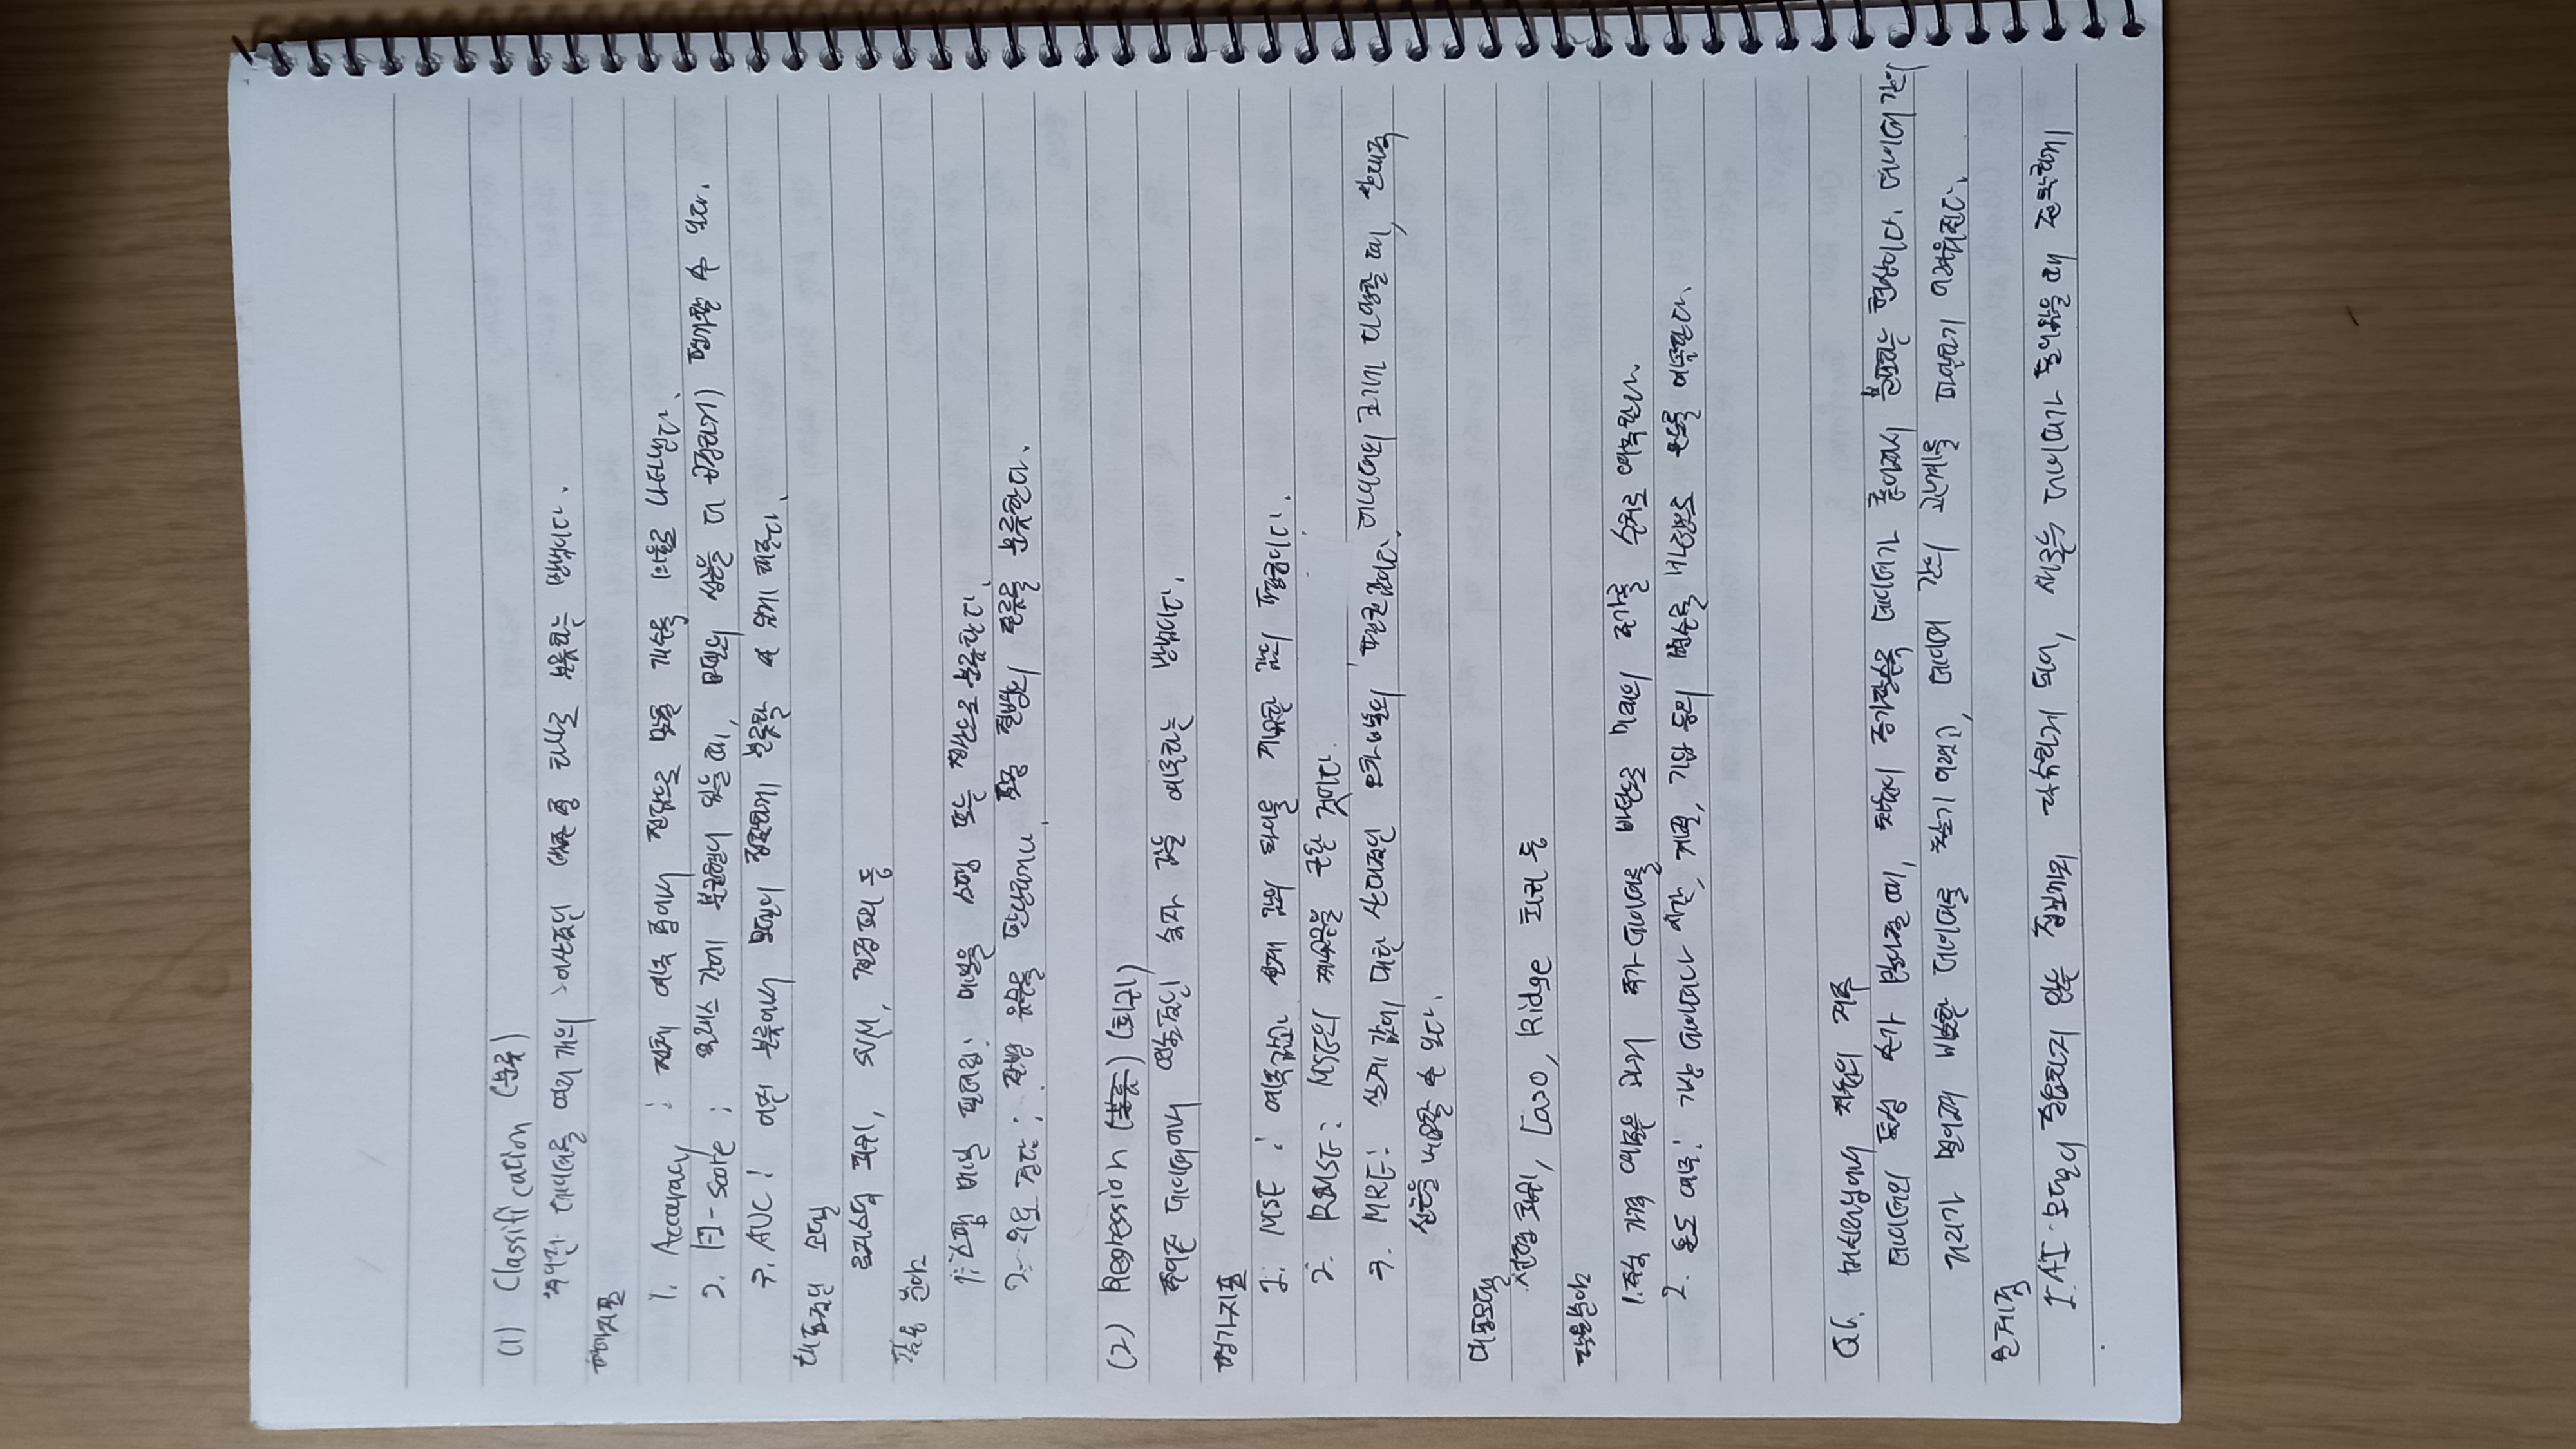 (1) Classification (분류)
주어진 데이터를 여러 개의 이산적인 범주 중 하나로 분류하는 방법이다.
평가지표
1. Accuracy : 전체 예측 중에서 정답으로 맞춘 개수를 비율로 나타낸다.
2. F1-score : 클래스 간에 불균형이 있을 때, 모델의 성능을 더 공정하게 평가할 수 있다.
3. AUC : 이진 분류에서 모델이 정확하게 분류할 수 있게 해준다.
대표적인 모델
로지스틱 회귀, SVM, 결정트리 등
활용 분야
1. 스팸 메일 필터링: 메일을 스팸 또는 정상으로 분류한다.
2. 의료 진단 : 질병 유무를 판단하거나, 질병의 종류를 분류한다.
(2) Regression (분류) (회귀)
주어진 데이터에서 연속적인 숫자 값을 예측하는 방법이다.
평가지표
1. MSE : 예측값과 실제 값의 차이를 제곱한 값의 평균이다.
2. RMSE : MSE의 제곱근을 구한 것이다.
3. MRE : 실제 값에 대한 상대적인 오차 비율의 평균값이다. 데이터의 크기가 다양할 때, 상대적
성능을 비교할 수 있다.
대표모델
선형 회귀, Lasso, Ridge 회귀 등
활용분야
1. 주식 가격 예측은 과거 주가 데이터를 바탕으로 미래의 주가를 수치로 예측한다.
2. 온도 예측: 기상 데이터나 시간, 계절, 기압 등의 변수를 바탕으로 온도를 예측한다.
Q6. 머신러닝에서 차원의 저주
데이터의 특성 수가 많아질 때, 차원이 증가할수록 데이터가 흩어져서 분포하는 현상이다. 데이터 간의
거리가 멀어져 비슷한 데이터를 찾기 어렵고, 데이터 간의 관계를 파악하기 어려워진다.
문제점
1. AI 모델이 중요하지 않은 정보까지 학습하게 되어, 새로운 데이터가 들어왔을 때 정확하게